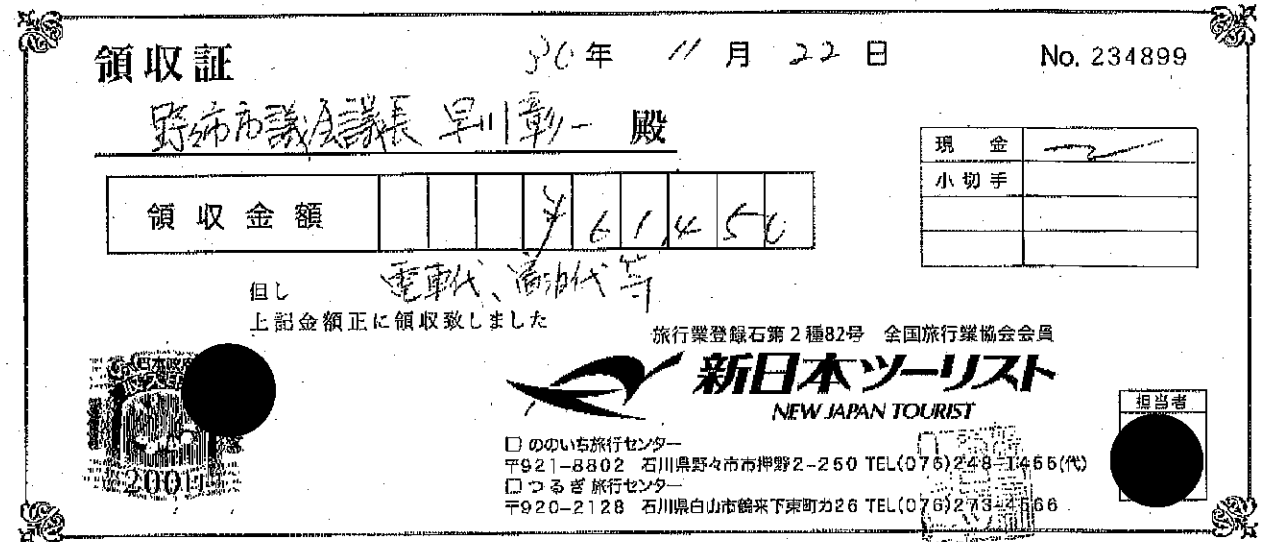 領収証 30年 11月 22日 No. 234899
野々市市議会議長 早川彰一 殿
現金
小切手
領収金額 ¥61,450
但し 電車代、宿泊代等
上記金額正に領収致しました
旅行業登録石第2種82号 全国旅行業協会会員
新日本ツーリスト
NEW JAPAN TOURIST
担当者
□ ののいち旅行センター
〒921-8802 石川県野々市市押野2-250 TEL(076)248-1466(代)
□ つるぎ旅行センター
〒920-2128 石川県白山市鶴来下東町カ26 TEL(076)273-4566
200円